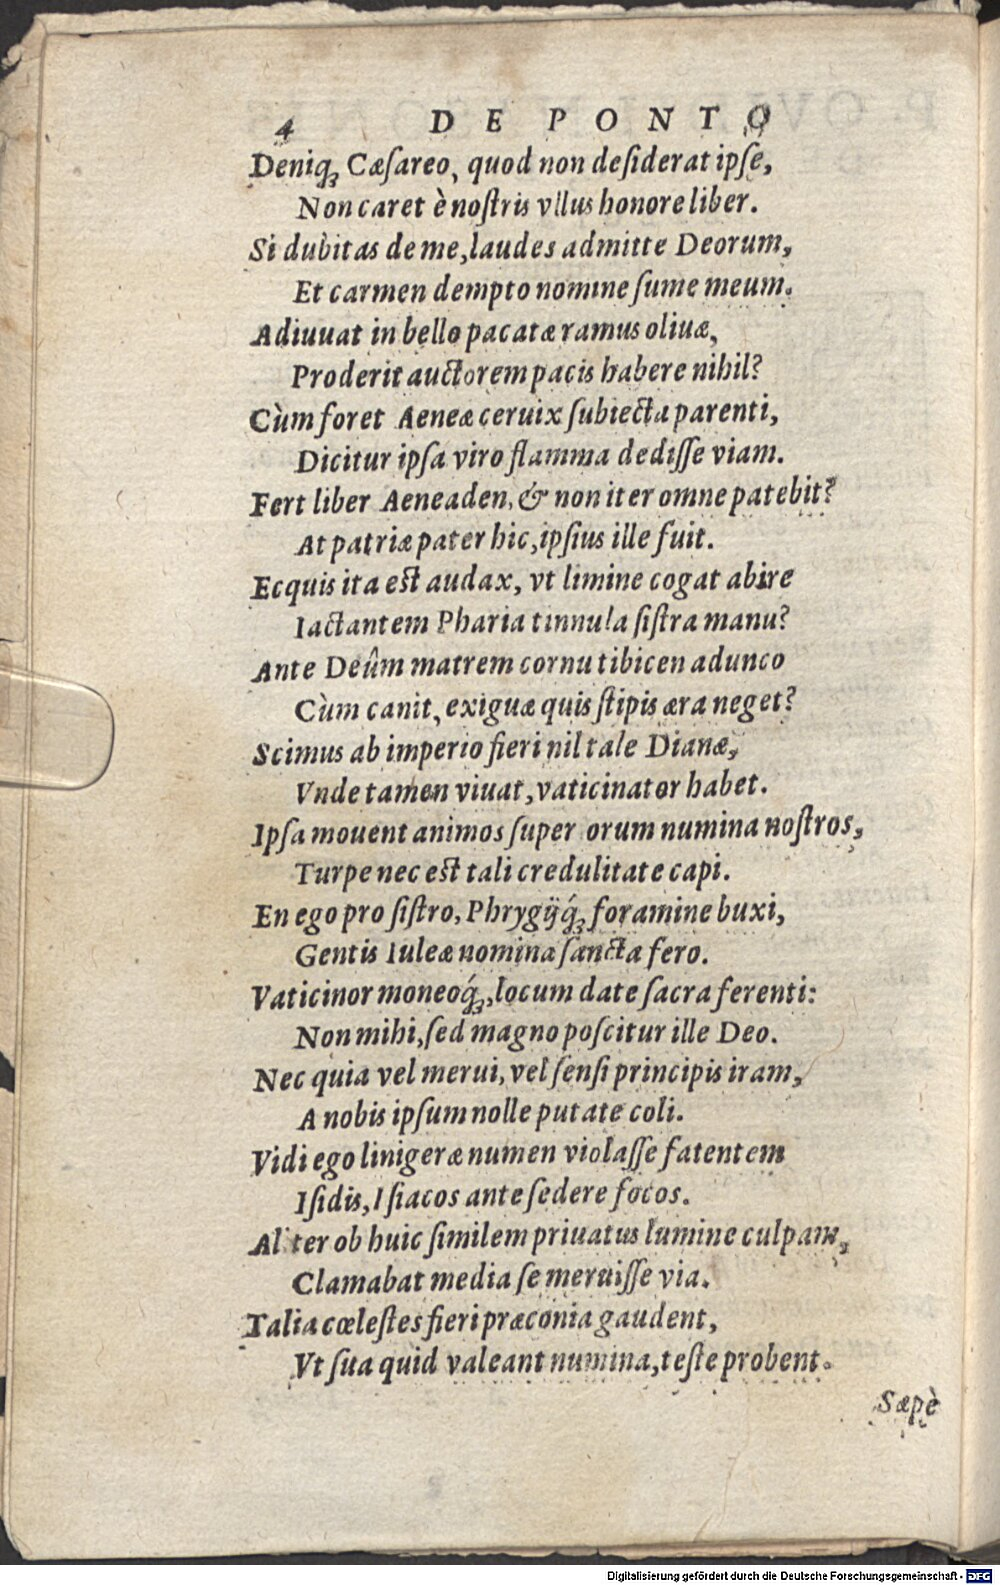 4 DE PONTO
Deniq; Cæſareo, quod non deſiderat ipſe,
Non caret è noſtris vllus honore liber.
Si dubitas de me, laudes admitte Deorum,
Et carmen dempto nomine ſume meum.
Adiuuat in bello pacatæ ramus oliuæ,
Proderit auctorem pacis habere nihil?
Cùm foret Aeneæ ceruix ſubiecta parenti,
Dicitur ipſa viro flamma dediſſe viam.
Fert liber Aeneaden, & non iter omne patebit?
At patriæ pater hic, ipſius ille fuit.
Ecquis ita eſt audax, vt limine cogat abire
Iactantem Pharia tinnula ſiſtra manu?
Ante Deûm matrem cornu tibicen adunco
Cùm canit, exiguæ quis ſtipis æra neget?
Scimus ab imperio fieri nil tale Dianæ,
Vnde tamen viuat, vaticinator habet.
Ipſa mouent animos ſuperorum numina noſtros,
Turpe nec eſt tali credulitate capi.
En ego pro ſiſtro, Phrygijq́; foramine buxi,
Gentis Iuleæ nomina ſancta fero.
Vaticinor moneoq́;, locum date ſacra ferenti:
Non mihi, ſed magno poſcitur ille Deo.
Nec quia vel merui, vel ſenſi principis iram,
A nobis ipſum nolle putate coli.
Vidi ego linigeræ numen violaſſe fatentem
Iſidis, Iſiacos ante ſedere focos.
Alter ob huic ſimilem priuatus lumine culpam,
Clamabat media ſe meruiſſe via.
Talia cœleſtes fieri præconia gaudent,
Vt ſua quid valeant numina, teſte probent.
Sæpè
Digitalisierung gefördert durch die Deutsche Forschungsgemeinschaft - DFG